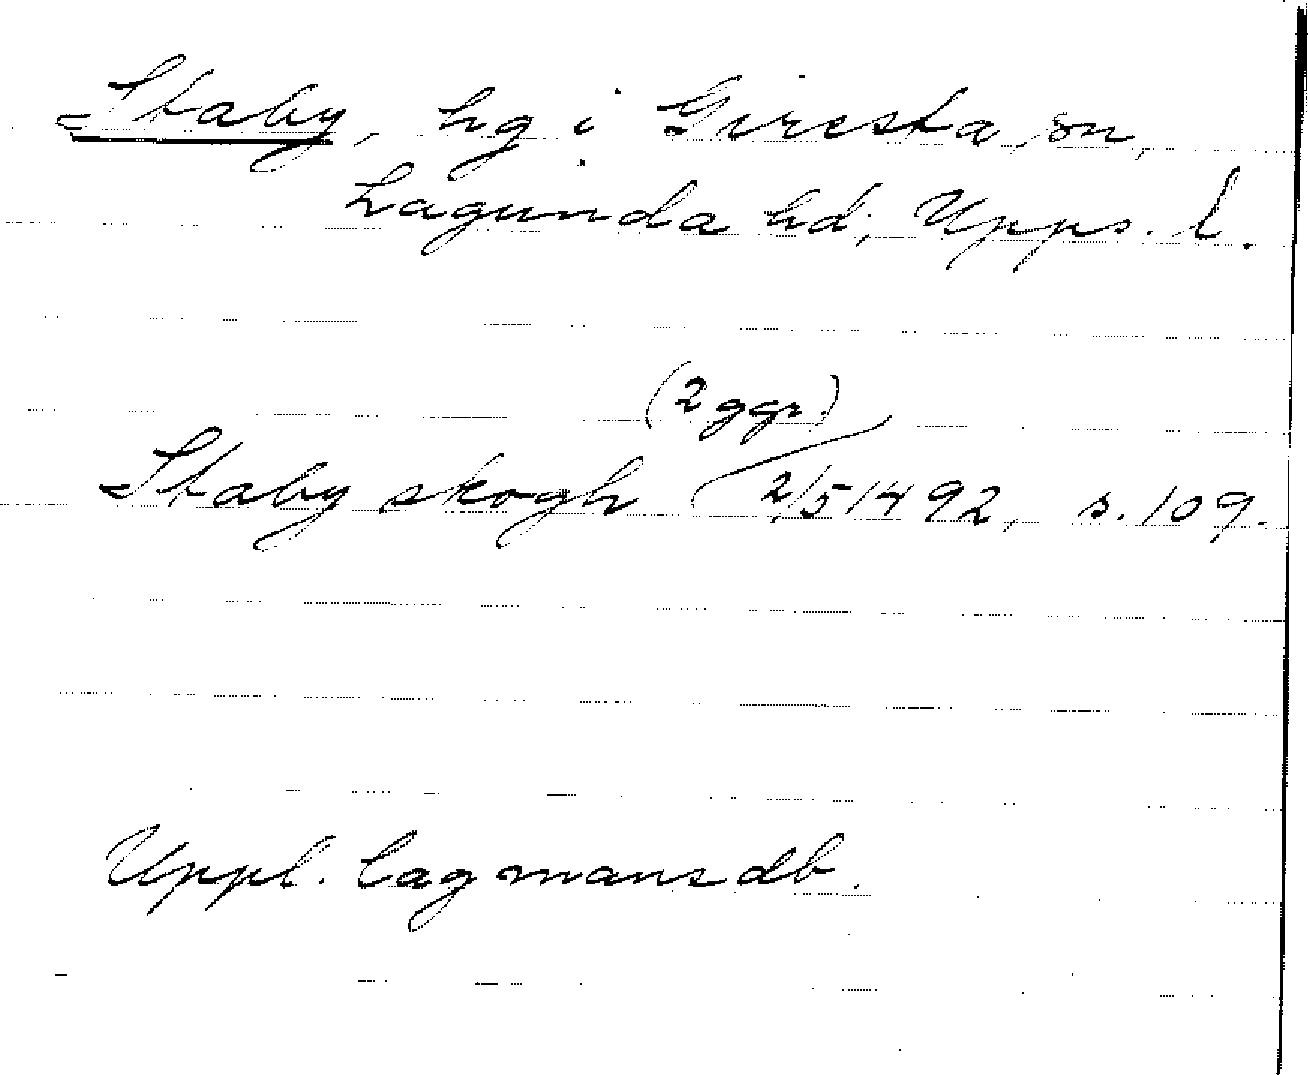 Staby, hg i Giresta sn,
Lagunda hd, Upps. l.
(2 ggr)
Staby skogh 2/5 1492, s. 109.
Uppl. lagmansdb.